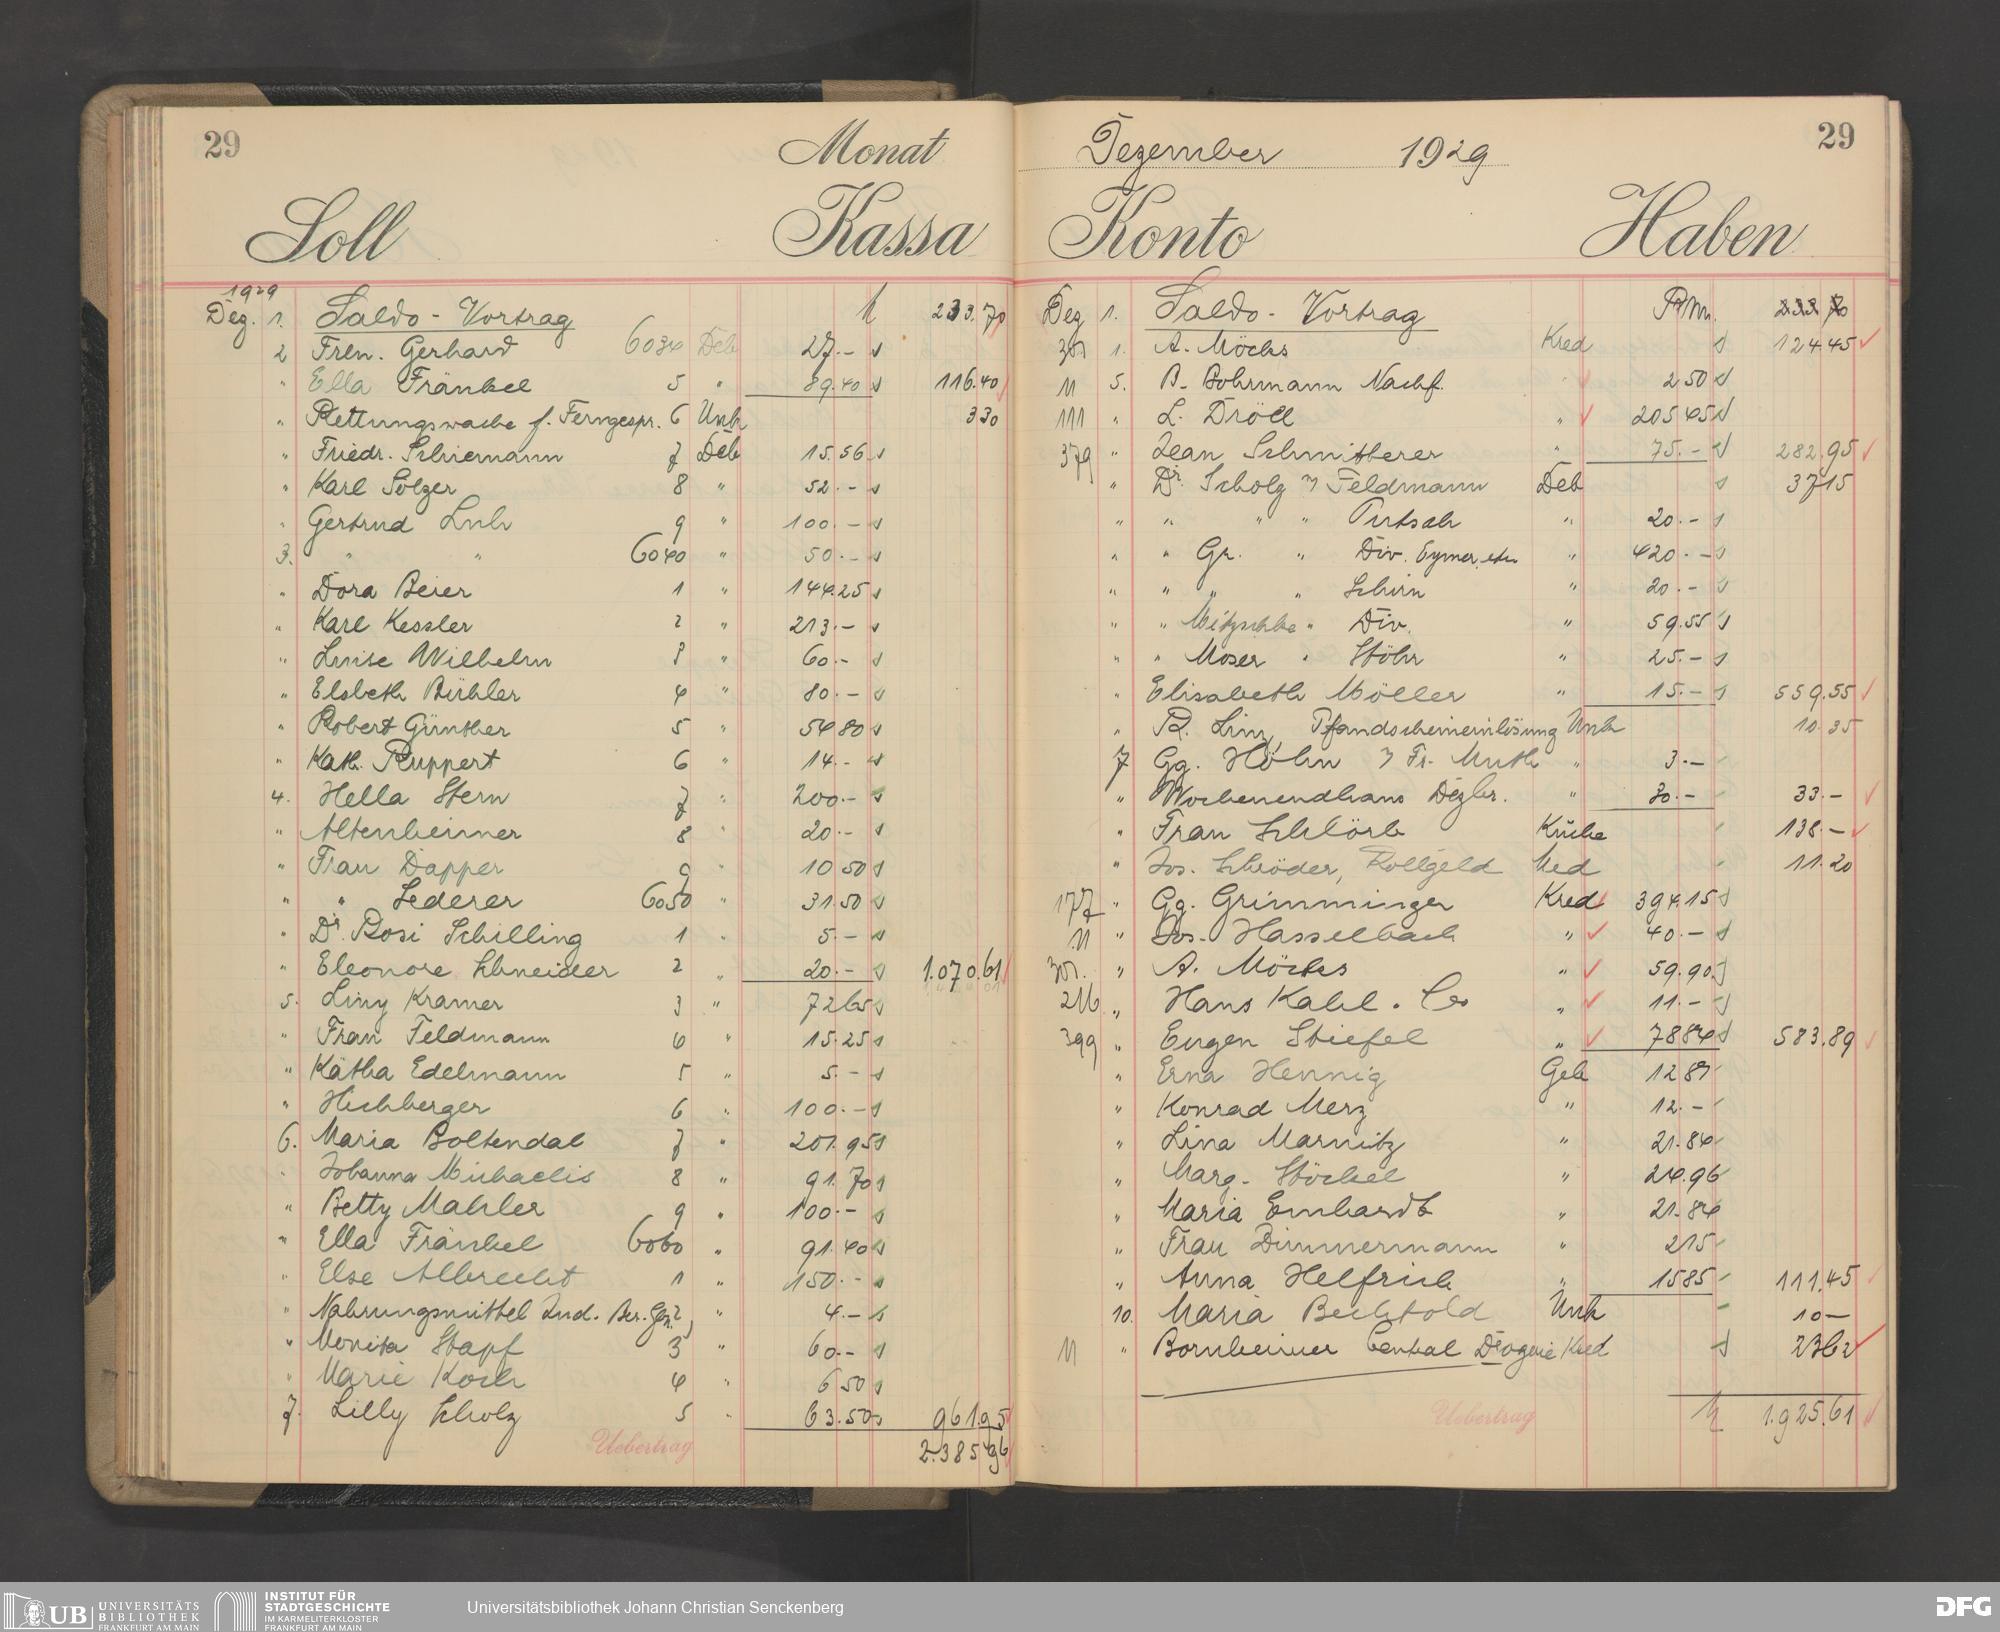 29
Monat
Soll
Kassa
1929
Dez. 1. Saldo-Vortrag 233.70
2 Frln. Gerhard 6034 Deb 27.-
" Ella Fränkel 5 " 89.40 116.40
" Rettungswache f. Ferngespr. 6 Unk 3 30
" Friedr. Schiemann 7 Deb 15.56
" Karl Solzer 8 " 52.-
" Gertrud Luh 9 " 100.-
3. " " 6040 " 50.-
" Dora Beier 1 " 144.25
" Karl Kessler 2 " 213.-
" Luise Wilhelm 3 " 60.-
" Elsbeth Bühler 4 " 80.-
" Robert Günther 5 " 54 80
" Kath. Ruppert 6 " 14.-
4. Hella Stern 7 " 200.-
" Altenheimer 8 " 20.-
" Frau Dapper 9 " 10 50
" " Lederer 6050 " 31.50
" Dr. Rosi Schilling 1 " 5.-
" Eleonore Schneider 2 " 20.- 1.070.61
5. Liny Kramer 3 " 7265
" Frau Feldmann 4 " 15.25
" Kätha Edelmann 5 " 5.-
" Hichberger 6 " 100.-
6. Maria Boltendal 7 " 201.95
" Johanna Michaelis 8 " 91.70
" Betty Mahler 9 " 100.-
" Ella Fränkel 6060 " 91.40
" Else Albrecht 1 " 150.-
" Nahrungsmittel Ind. Ber. 2 " 4.-
" Monika Stapf 3 " 60.-
" Marie Koch 4 " 6 50
7. Lilly Scholz 5 " 63.50 961.95
Uebertrag 2.385 96
29
Dezember 1929
Konto
Haben
Dez 1. Saldo-Vortrag Rm. 233 70
301 1. A. Möcks Kred 124.45
11 5. B. Bohrmann Nachf. " 2 50
111 " L. Dröll " 205 45
379 " Jean Schmitterer " 75.- 282.95
" Dr. Scholz Feldmann Deb 37 15
" " " " Putsch " 20.-
" " Gr. " Div. Eymer, etc " 420.-
" " " " Schirn " 20.-
" " Mitzschke " Div. " 59.55
" " Moser " Stöhr " 25.-
" Elisabeth Möller " 15.- 559.55
" R. Linz, Pfandscheineinlösung Unk 10.35
7 Gg. Höhn Fr. Muth " 3.-
" Wochenendhaus Dezbr. " 30.- 33.-
" Frau Schlörb Küche 138.-
" Jos. Schröder, Rollgeld Med 11.20
177 " Gg. Grimminger Kred 394.15
11 " Jos. Hasselbach " 40.-
301. " A. Möcks " 59.90
216 " Hans Kahl. Co " 11.-
399 " Eugen Stiefel " 7884 583.89
" Erna Hennig Geh 12 81
" Konrad Merz " 12.-
" Lina Marnitz " 21.84
" Marg. Stöckel " 24.96
" Maria Emhardt " 21.84
" Frau Dimmermann " 2 15
" Anna Helfrich " 1585 111.45
10. Maria Bechtold Unk 10-
11 " Bornheimer Central Drogerie Kred 2362
Uebertrag 1.925.61
UB UNIVERSITÄTS
BIBLIOTHEK
FRANKFURT AM MAIN
INSTITUT FÜR
STADTGESCHICHTE
IM KARMELITERKLOSTER
FRANKFURT AM MAIN
Universitätsbibliothek Johann Christian Senckenberg
DFG